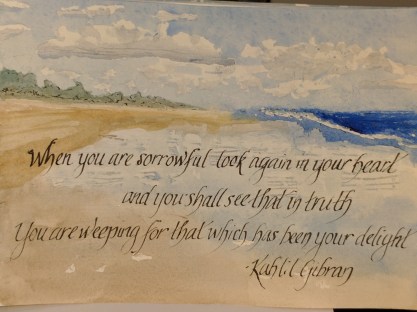 When you are sorrowful look again in your heart
and you shall see that in truth
You are weeping for that which has been your delight
-Kahlil Gibran